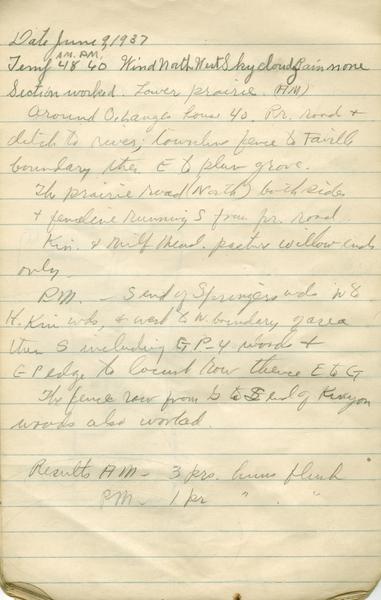 Date June 9, 1937
A.M. P.M.
Temp 48 60 Wind North West Sky cloudy Rain none
Section worked. Lower prairie. (AM)
Around Ochanges house 40. Pr. road &
ditch to river; townline fence to Faville
boundary then E to plum grove.
The prairie road (North) both sides
& fenceline running S from pr. road.
Kin. & Milf Mead. pasture willow ends
only.
P.M. – S end of Springers wds N &
H. Kin wds, & west to N. boundary of area
then S including G P-4 woods &
G P edge to locust row thence E to G
The fence row from to S end of Kenyon
woods also worked.
Results A.M – 3 prs. huns flush
P.M. – 1 pr " "